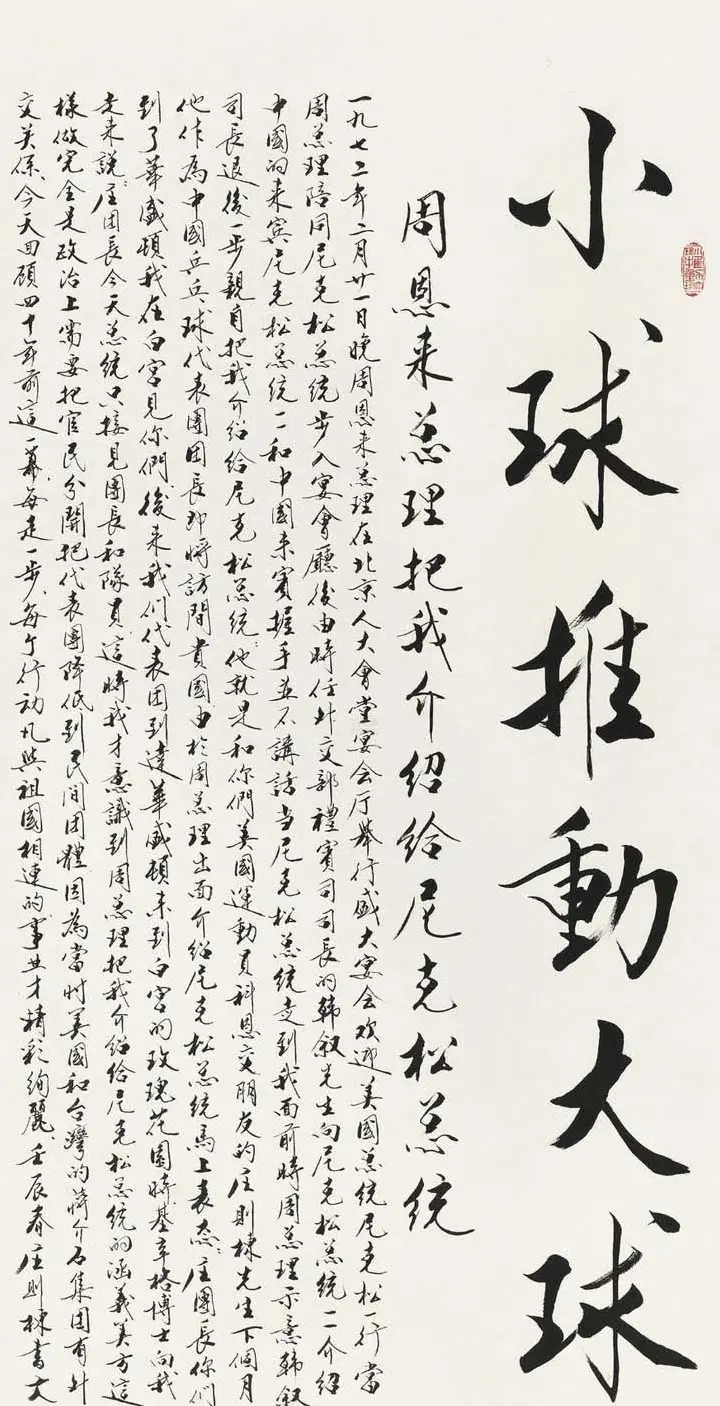 小球推動大球
周恩来总理把我介紹给尼克松总统
一九七二年二月廿一日晚周恩来总理在北京人大會堂宴会厅舉行盛大宴会欢迎美國总統尼克松一行當
周总理陪同尼克松总統步入宴會廳後由時任外交部禮賓司司長的韩叙先生向尼克松总統一一介紹
中國的来宾尼克松总統一一和中國来賓握手並不講話当尼克松总統走到我面前時周总理示意韩叙
司長退後一步親自把我介紹給尼克松总統他就是和你們美國運動員科恩交朋友的庄則棟先生下個月
他作為中國乒乓球代表團團長即將訪問貴國由於周总理出面介紹尼克松总統馬上表态庄團長你們
到了華盛頓我在白宫見你們後来我们代表团到達華盛頓来到白宫的玫瑰花園時基辛格博士向我
走来說庄团長今天总統只接見團長和隊員這時我才意識到周总理把我介紹給尼克松总統的涵義美方這
樣做完全是政治上需要把官民分開把代表團降低到民间团體因為當时美國和台灣的蔣介石集团有外
交关係今天回顾四十年前這一幕每走一步每个行动凡與祖國相連的事业才精彩絢麗壬辰春庄則棟書文